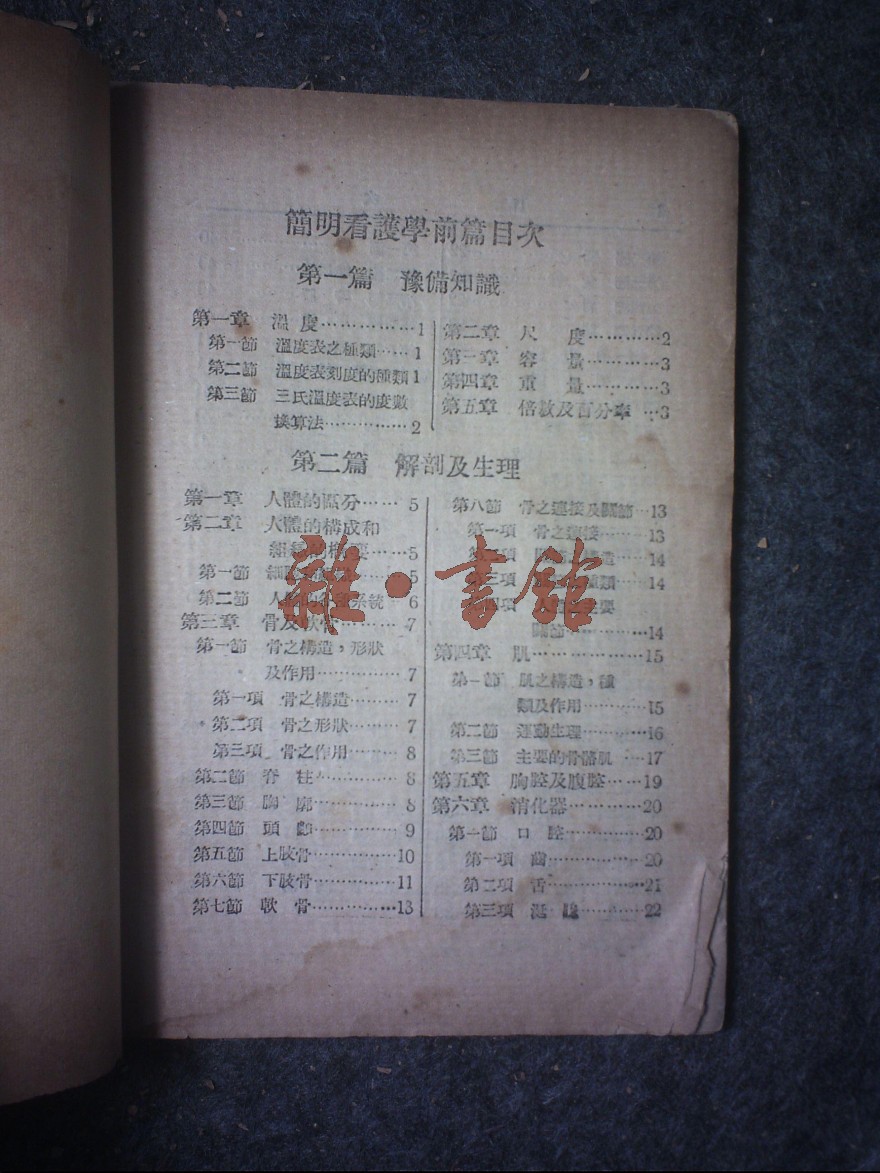 簡明看護學前篇目次
第一篇 豫備知識
第一章 溫度……………1
第一節 溫度表之種類……1
第二節 溫度表刻度的種類1
第三節 三氏溫度表的度數
換算法……………2
第二章 尺度…………2
第三章 容量…………3
第四章 重量…………3
第五章 倍數及百分率…3
第二篇 解剖及生理
第一章 人體的區分……5
第二章 人體的構成和
組織的概要……5
第一節 細胞……5
第二節 人體的系統…6
第三章 骨及軟骨………7
第一節 骨之構造，形狀
及作用……………7
第一項 骨之構造………7
第二項 骨之形狀………7
第三項 骨之作用………8
第二節 脊柱……………8
第三節 胸廓……………8
第四節 頭顱……………9
第五節 上肢骨…………10
第六節 下肢骨…………11
第七節 軟骨……………13
第八節 骨之連接及關節…13
第一項 骨之連接………13
第二項 關節之構造……14
第三項 種類…14
第四項 主要
關節……………14
第四章 肌………………15
第一節 肌之構造，種
類及作用…………15
第二節 運動生理………16
第三節 主要的骨骼肌…17
第五章 胸腔及腹腔……19
第六章 消化器…………20
第一節 口腔……………20
第一項 齒………………20
第二項 舌………………21
第三項 涎腺…………22
雜·書館